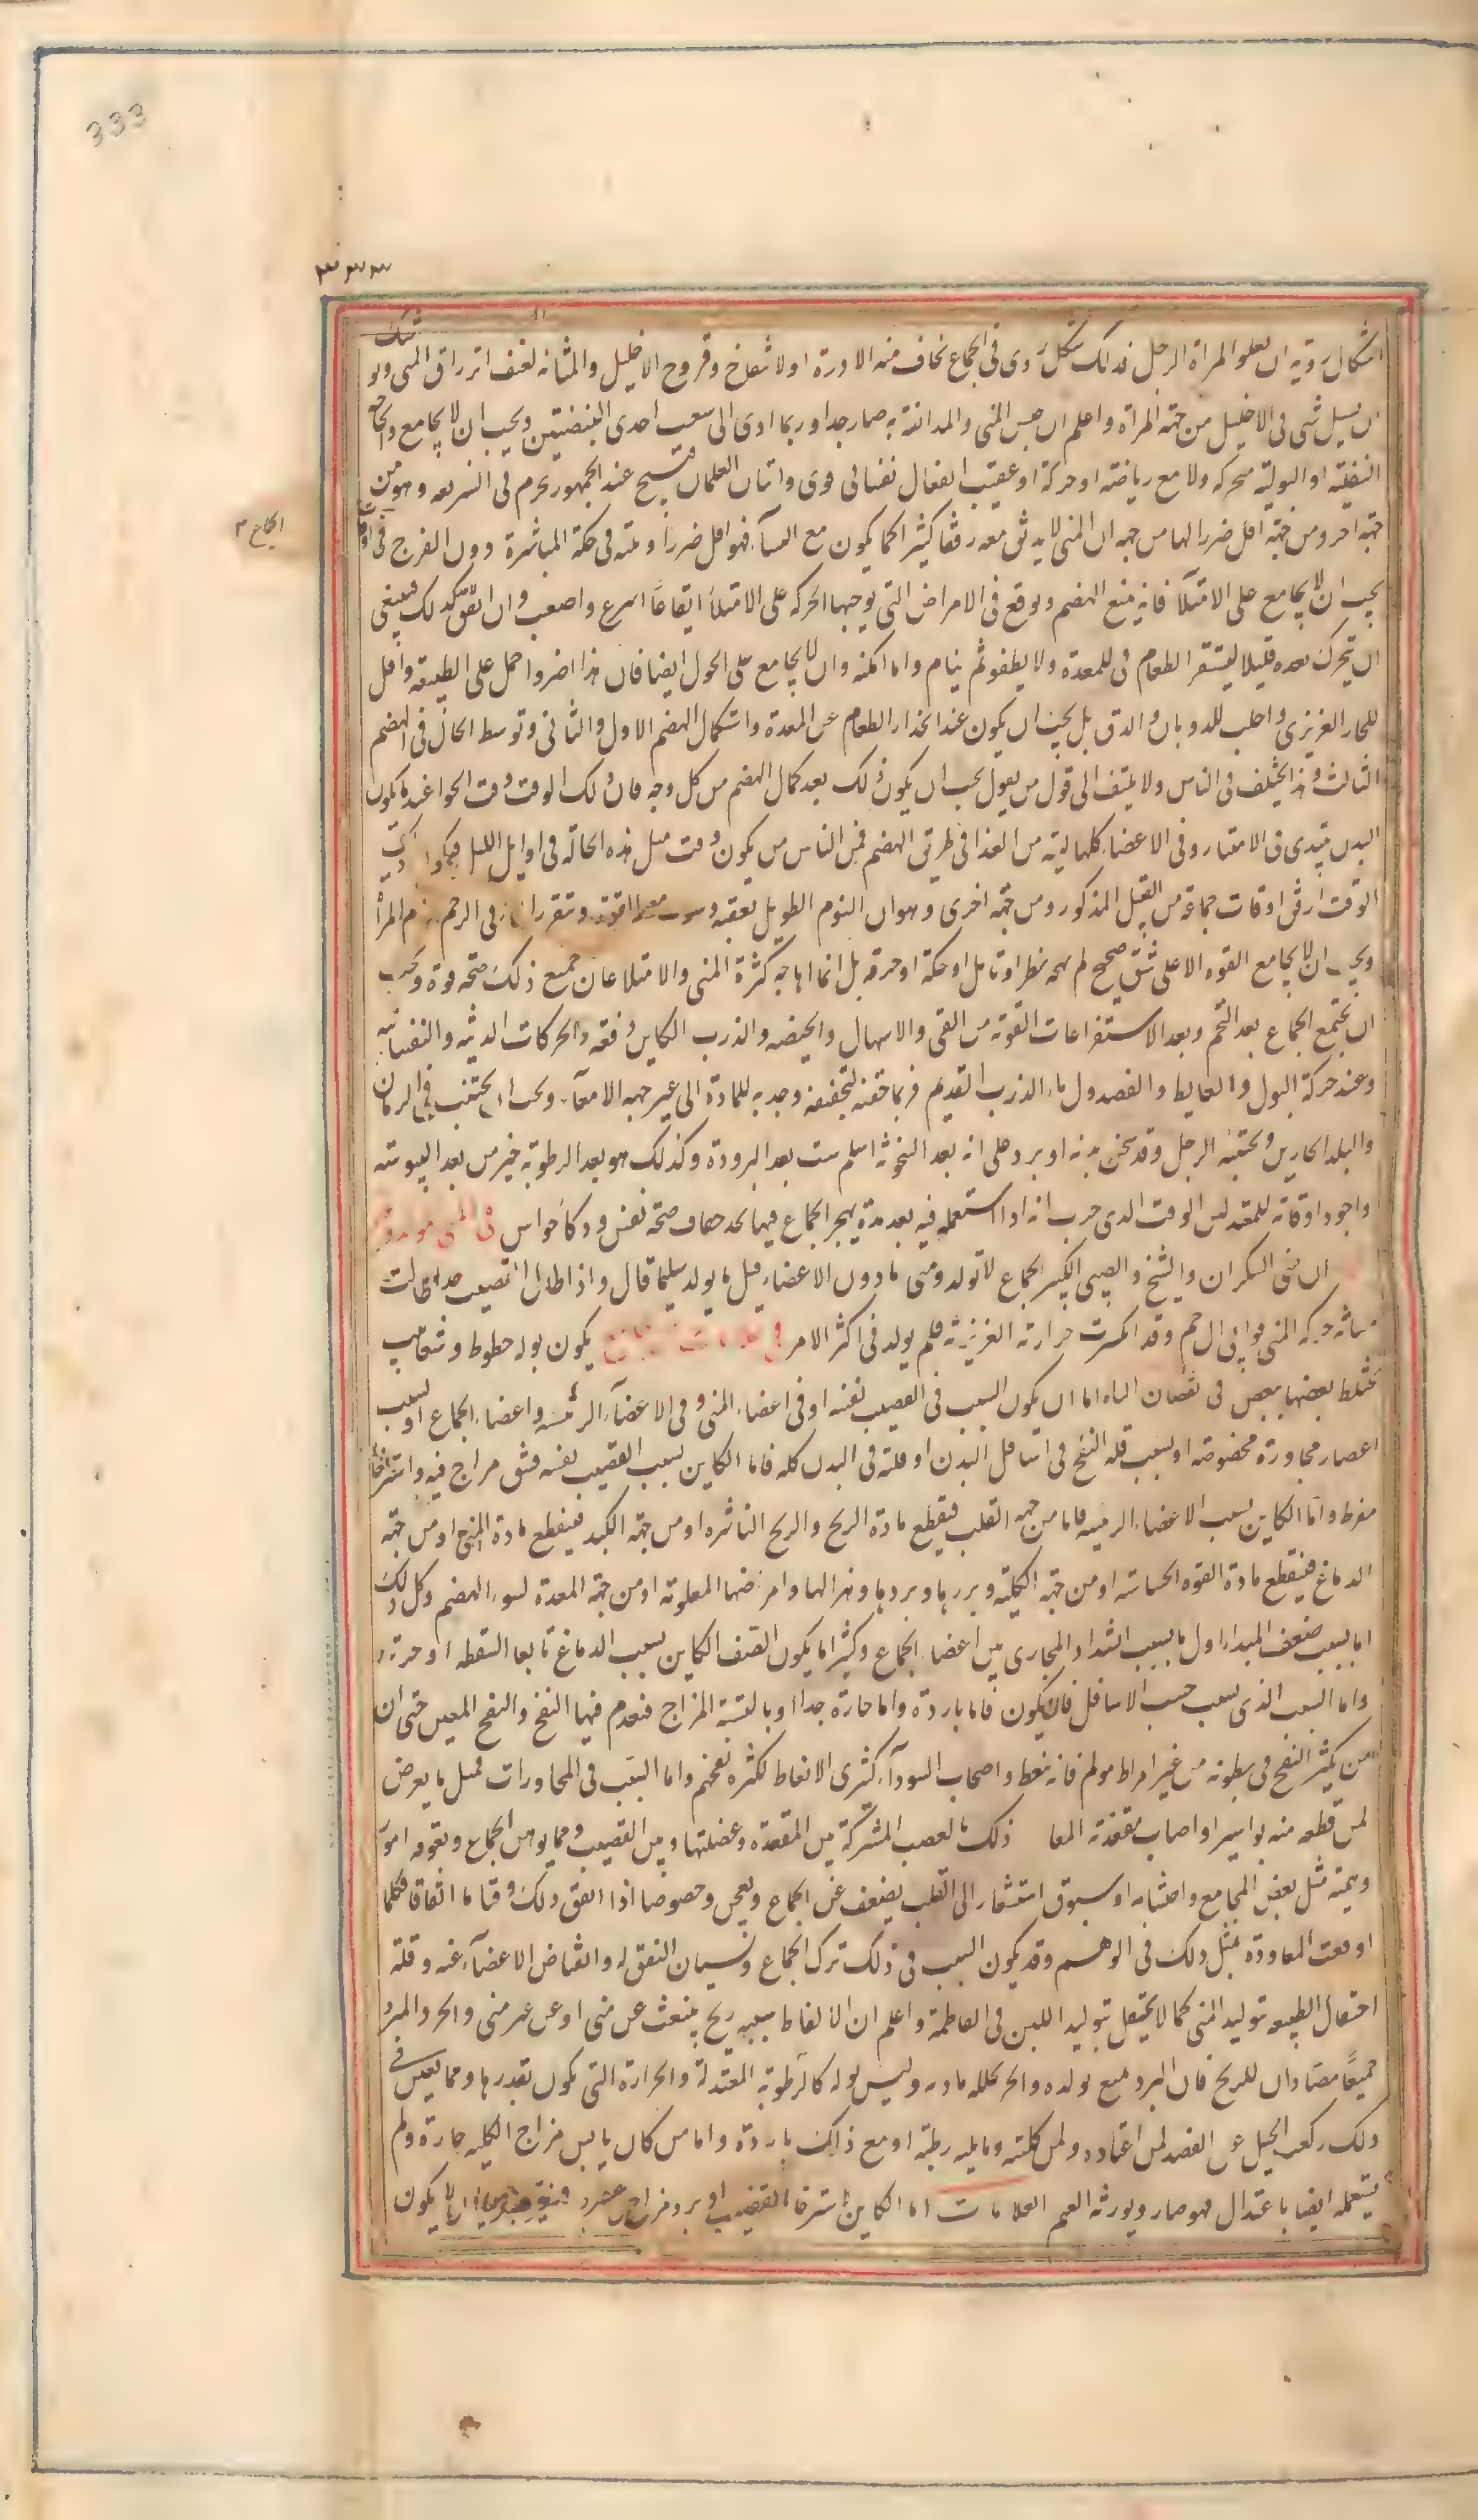 333
٣٣٣
اشكال ردية ان يعلو المراة الرجل فذلك شكل ردى فى الجماع يخاف منه الادرة او لا شفاخ وقروح الاحليل والمثانة لعنف اتزراق المنى ويو شك
ان يسيل شى فى الاحليل من جهة المراة واعلم ان حبس المنى والمدافعة به ضار جدا وربما ادى الى تعييب احدى البيضتين ويجب ان لا يجامع والحاجة
الثفلية او البولية متحركة ولا مع رياضة او حركة او عقيب انفعال نفسانى قوى واتيان الغلمان قبيح عند الجمهور محرم فى الشريعة وهو من
جهة اضر ومن جهة اقل ضررا اما من جهة ان المنى لا يندفق معه دفقا كثيرا كما يكون مع النساء فهو اقل ضررا ويليه فى حكمه المباشرة دون الفرج فى اوقات
الجماع ٣
يجب ان لا يجامع على الامتلاء فانه يمنع الهضم ويوقع فى الامراض التى يوجبها الحركة على الامتلاء ايقاعا اسرع واصعب وان اتفق كذلك فينبغى
ان يتحرك بعده قليلا ليستقر الطعام فى المعدة ولا يطفو ثم ينام واما امكنه وان لا يجامع على الخوى ايضا فان هذا اضر واحمل على الطبيعة واقتل
للحار الغريزى واجلب للذوبان والدق بل يجب ان يكون عند انحدار الطعام عن المعدة واستكمال الهضم الاول والثانى وتوسط الحال فى الهضم
الثالث وهذا يختلف فى الناس ولا يلتفت الى قول من يقول يجب ان يكون ذلك بعد كمال الهضم من كل وجه فان ذلك الوقت وقت الخواء عنده يكون
البدن يبتدى فى الامتيار وفى الاعضاء كلها بقية من الغذا فى طريق الهضم فمن الناس من يكون وقت مثل هذه الحالة فى اوايل الليل فيكون ذلك
الوقت ارفق اوقات جماعه من القبيل المذكور ومن جهة اخرى وهو ان النوم الطويل يعقبه وتثوب معه القوة ويتقرر الماء فى الرحم لنوم المرأة
ويجب ان لا يجامع القوة الا على شبق صحيح لم يهجه نظر او تامل او حكة او حرقة بل انما هاجه كثرة المنى والامتلاء فان جميع ذلك صحة قوة ويجب
ان يجتنب الجماع بعد التخم وبعد الاستفراغات القوية من القى والاسهال والهيضة والذرب الكاين دفعة والحركات البدنية والنفسانية
وعند حركة البول والغايط والفصد واما الذرب القديم فربما جففه لتجفيفه وجذبه للمادة الى غير جهة الامعاء ويجب ان يجتنب فى الزمان
والبلد الحارين ويجتنبه الرجل وقد سخن بدنه او برد على انه بعد السخونة اسلم منه بعد البرودة وكذلك هو بعد الرطوبة خير من بعد اليبوسة
واجود اوقاته للمعتدلين الوقت الذى جرب انه اذا استعمله فيه بعد مدة يهجر الجماع فيها يجد خفاف صحة نفس وذكاء حواس فى المنى مولد وغير
ان منى السكران والشيخ والصبى الكثير الجماع لا يولد ومنى مادون الاعضاء قل ما يولد سليما قال واذا طال القضيب جدا طالت
مسافة حركة المنى فوافى الرحم وقد انكسرت حرارته الغريزية فلم يولد فى اكثر الامر فى علامات يكون بوله خطوط وشعاب
يختلط بعضها ببعض فى نقصان الباه اما ان يكون السبب فى القضيب نفسه او فى اعضاء المنى وفى الاعضاء الرئيسة واعضاء الجماع او بسبب
اعضاء مجاورة مخصوصة او بسبب قلة النفخ فى اسافل البدن او قلته فى البدن كله فاما الكاين بسبب القضيب نفسه فسوء مزاج فيه واسترخاء
مفرط واما الكاين بسبب الاعضاء الرئيسة فاما من جهة القلب فينقطع مادة الريح والريح الناشرة او من جهة الكبد فينقطع مادة المنى او من جهة
الدماغ فينقطع مادة القوة الحساسة او من جهة الكلية وبردها وهزالها وامراضها المعلومة او من جهة المعدة لسوء الهضم وكل ذلك
اما بسبب ضعف المبدا واما بسبب انسداد المجارى بين اعضاء الجماع وكثيرا ما يكون الضعف الكاين بسبب الدماغ تابعا لسقطة او ضربة
واما السبب الذى بسبب حسب الاسافل فان يكون فاما باردة واما حارة جدا او يابسة المزاج فيعدم فيها النفخ والنفخ المعين حتى ان
من يكثر النفخ فى بطونه من غير افراط مولم فانه ينعظ واصحاب السوداء كثيرى الانعاظ لكثرة نفخهم واما السبب فى المجاورات فمثل ما يعرض
لمن قطعه منه بواسير او اصاب مقعدته الما ذلك بالعصب المشترك بين المقعدة وعضلتها وبين القضيب ومما يوهن الجماع ويعوقه امور
وهمية مثل بغض المجامع واحتشامه او سبوق استشعار الى القلب بضعف عن الجماع وبعجز وخصوصا اذا اتفق ذلك وقتا ما اتفاقا فكلما
اوقعت المعاودة تمثل ذلك فى الوهم وقد يكون السبب فى ذلك ترك الجماع ونسيان النفس له وانقباض الاعضاء عنه وقلة
احتفال الطبيعة بتوليد المنى كما لا يحتفل بتوليد اللبن فى الفاطمة واعلم ان الانعاظ سببه ريح ينبعث عن منى او عن غير منى والحر والبرد
جميعا مضادان للريح فان البرد يمنع تولده والحر يحلل مادته وليس يولده كالرطوبة المعتدلة والحرارة التى يكون بقدرها ومما يعين فى
ذلك ركوب الخيل على القصد لمن اعتاده ولمن كليته وما يليه رطبة او مع ذلك باردة واما من كان يابس مزاج الكلية حارة ولم
يستعمله ايضا باعتدال فهو ضار ويورثه العقم العلامات اما الكاين لاسترخاء القضيب او برد مزاج عصبه ان لا يكون